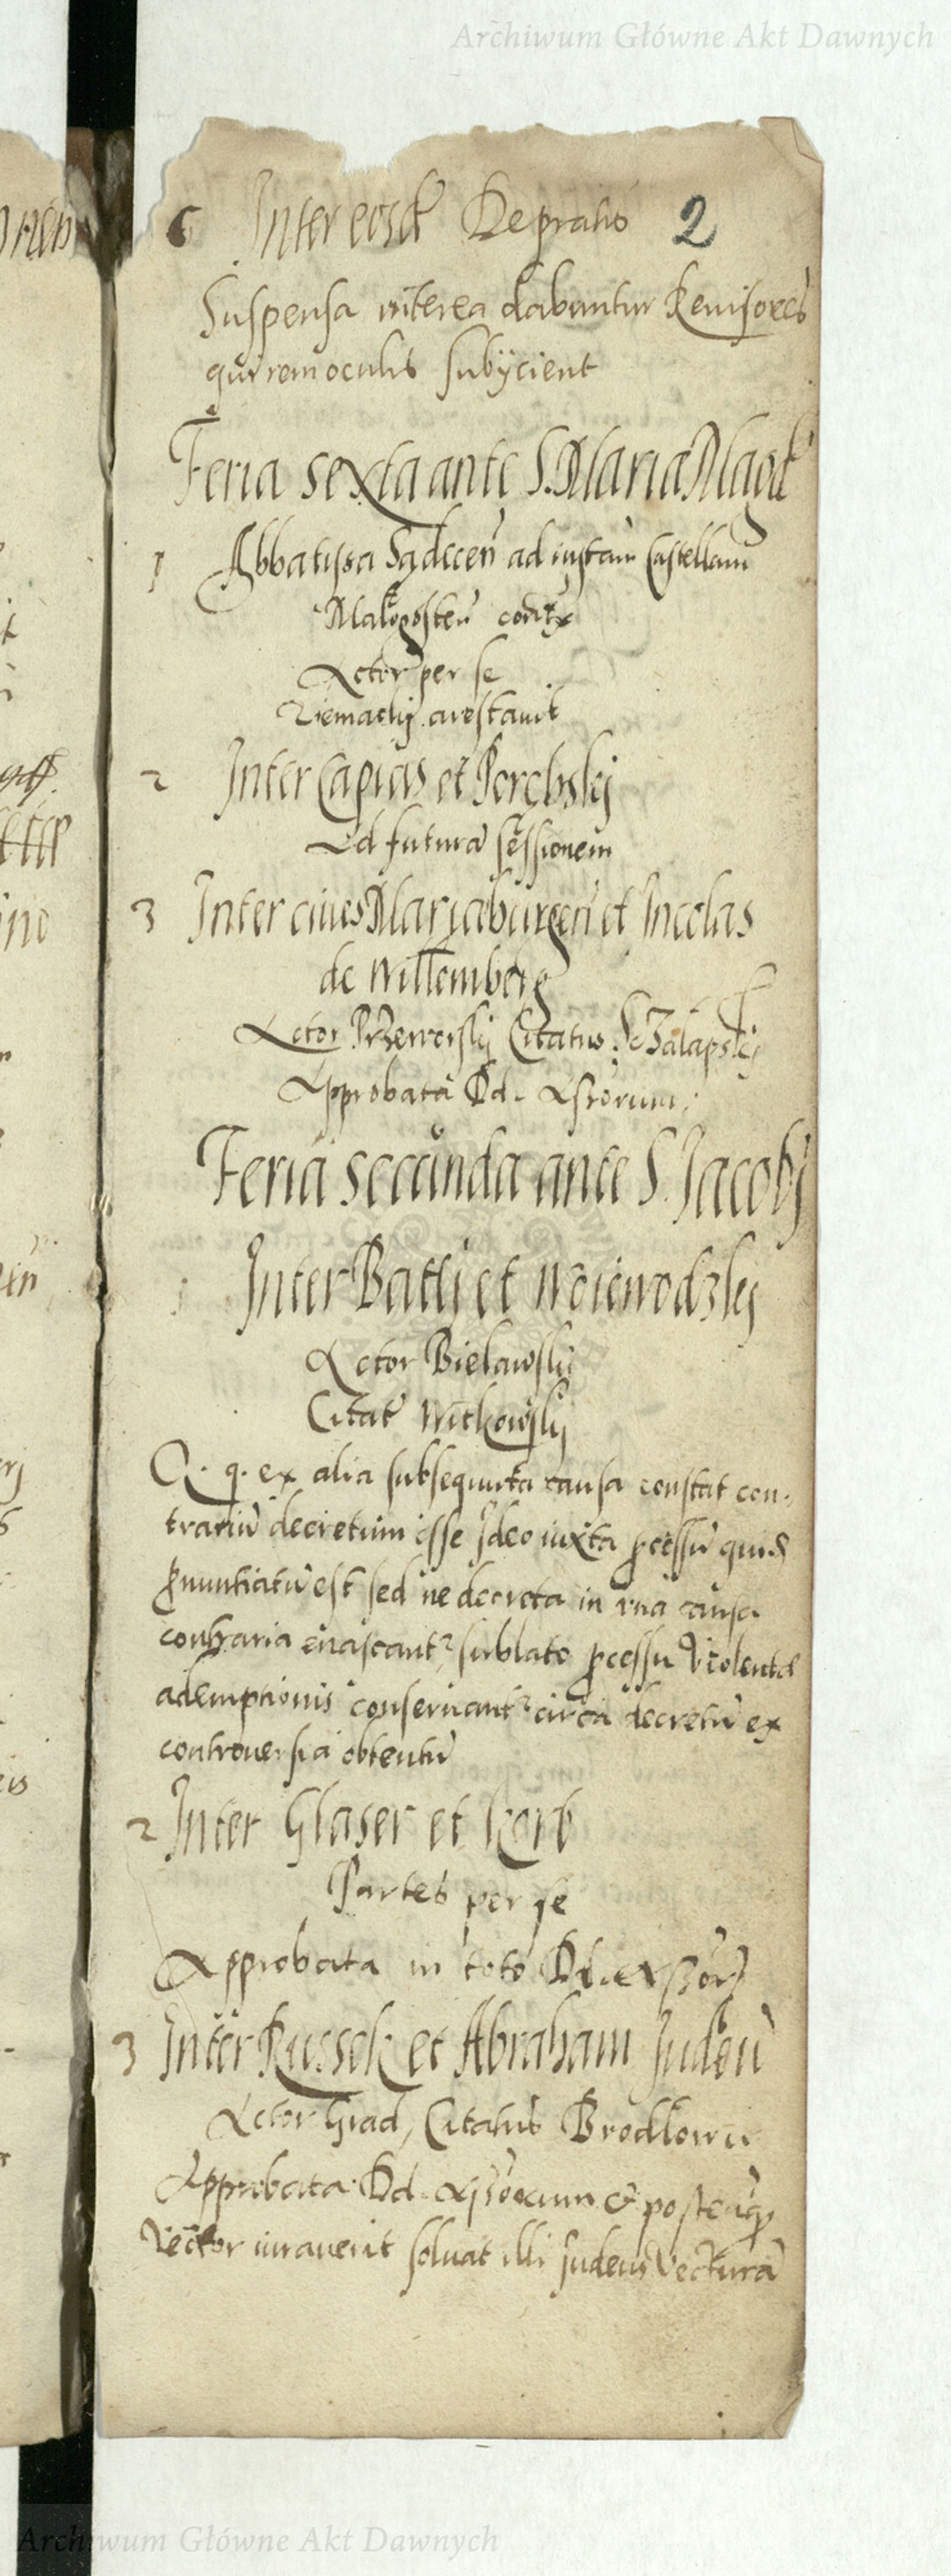 Archiwum Główne Akt Dawnych
6 Inter eosd De pratis 2
Suspensa interea dabuntur Reuisores
qui rem oculis subÿcient
Feria sexta ante S. Maria Magd
1 Abbatissa Sądecen ad instan Castellani
Malogosten
Actor per se
Ziemacky arestauit
2 Inter Capius et Porębsky
Ad futura sessionem
3 Inter ciues Marjæburgen et Incolas
de Willemberg
Actor Przeworsky Citatus Zalapsky
Approbata Dd. Assorum
Feria secunda ante S. Jacobj
Inter Batky et Woiewodzky
Actor Bielawsky
Citat Witkowsky
Q. q. ex alia subsequuta causa constat con-
trariu decretum esse Ideo iuxta pcessu quid
pnuntiatu est sed ne decreta in vna causa
contraria enascant sublato pcessu violentæ
ademptionis conseruant circa decretu ex
controuersia obtentu
2 Inter Glaser et Korb
Partes per se
Approbata in toto Dd. Assor
3 Inter Russek et Abraham Judeu
Actor Grad, Citatus Brodkowu
Approbata Dd. Assorum & posteaq
Vector iurauerit soluat illi Judeus Vectura
Archiwum Główne Akt Dawnych